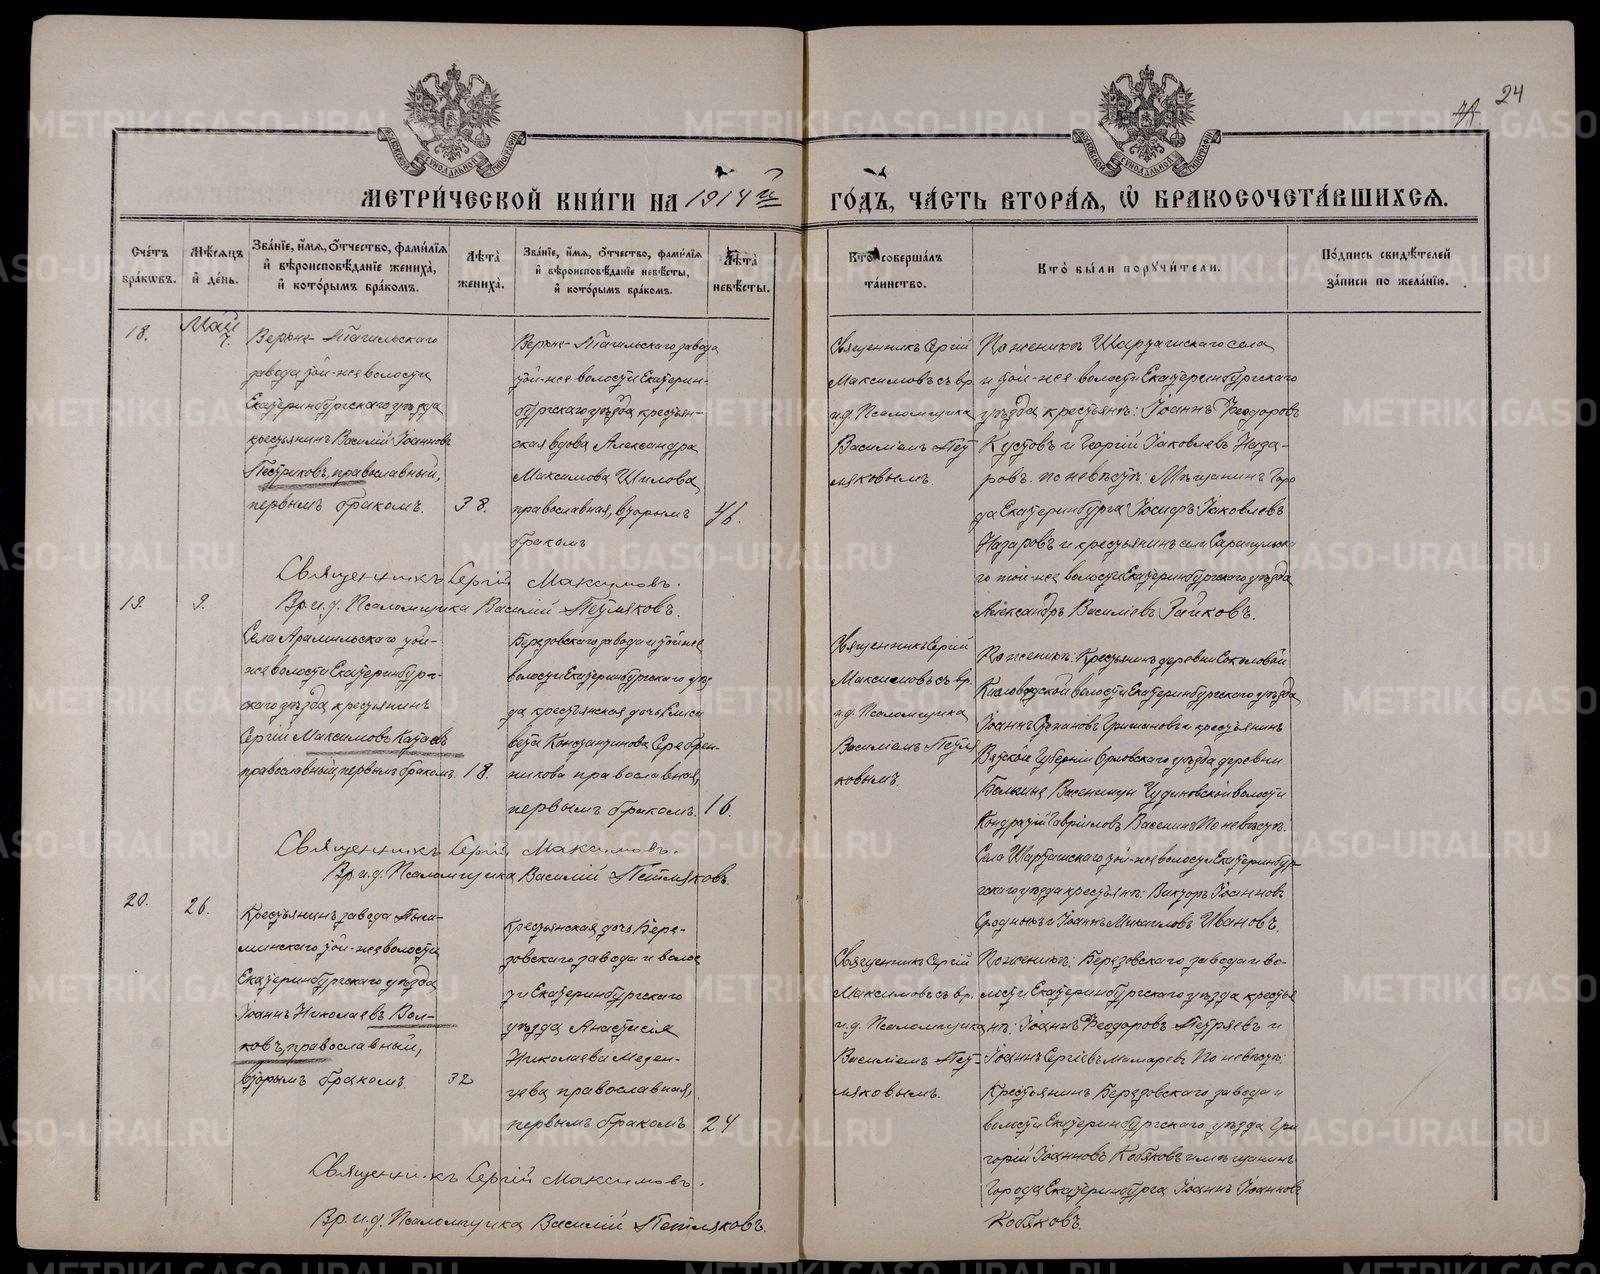 24
МЕТРИ́ЧЕСКОЙ КНИ́ГИ НА 1914 й ГО́ДЪ, ЧА́СТЬ ВТОРА́Я, Ѡ БРАКОСОЧЕТА́ВШИХСЯ.
Сче́тъ бра́кѡвъ.
Мѣ́сяцъ и҆ де́нь.
Зва́нїе, и҆́мя, ѻ҆́тчество, фами́лїя
и҆ вѣроисповѣ́данїе жениха̀,
и҆ кото́рымъ бра́комъ.
Лѣ́та жениха̀.
Зва́нїе, и҆́мя, ѻ҆́тчество, фами́лїя
и҆ вѣроисповѣ́данїе невѣ́сты,
и҆ кото́рымъ бра́комъ.
Лѣ́та невѣ́сты.
Кто̀ соверша́лъ та́инство.
Кто̀ бы́ли порꙋчи́тели.
По́дпись свидѣ́телей
за́писи по жела́нїю.
18.
Май
7.
Верхне-Тагильскаго
завода той-же волости
Екатеринбургскаго уѣзда
крестьянинъ Василій Іоанновъ
Пестриковъ, православный,
первымъ бракомъ.
38.
Верхне-Тагильскаго завода
той-же волости Екатерин-
бургскаго уѣзда крестьян-
ская вдова Александра
Максимова Шилова,
православная, вторымъ
бракомъ
46.
Священникъ Сергій
Максимовъ съ вр.
и.д. Псаломщика
Василіемъ Пет
ляковымъ.
По женихѣ Шарташскаго села
и той-же волости Екатеринбургскаго
уѣзда крестьяне: Іоаннъ Ѳеодоровъ
Кустовъ и Георгій Іаковлевъ Наза-
ровъ. по невѣстѣ: Мѣщанинъ горо
да Екатеринбурга Іосифъ Іаковлевъ
Назаровъ и крестьянинъ села Сарапульска
го той-же волости Екатеринбургскаго уѣзда
Александръ Василіевъ Зайковъ.
Священникъ Сергій Максимовъ.
Вр.и.д. Псаломщика Василій Петляковъ.
19.
9.
Села Арамильскаго той-
же волости Екатеринбург-
скаго уѣзда крестьянинъ
Сергій Максимовъ Катаевъ
православный, первымъ бракомъ.
18.
Березовскаго завода и той же
волости Екатеринбургскаго уѣз
да крестьянская дочь Елиса
вета Константинова Серебрен-
никова православная,
первымъ бракомъ.
16.
Священникъ Сергій
Максимовъ съ вр.
и.д. Псаломщика
Василіемъ Петля
ковымъ.
По женихѣ: Крестьянинъ деревни Соколовой
Кисловодской волости Екатеринбургскаго уѣзда
Іоаннъ Степановъ и крестьянинъ
Вятской Губерніи Орловскаго уѣзда деревни
Чудиновской волости
Кондратій Гавріиловъ Васенинъ По невѣстѣ:
Села Шарташскаго той-же волости Екатеринбур-
гскаго уѣзда крестьяне: Викторъ Іоанновъ
и Іоаннъ Михаиловъ Ивановъ.
Священникъ Сергій Максимовъ.
Вр.и.д. Псаломщика Василій Петляковъ.
20.
26.
Крестьянинъ завода Пыш-
минскаго той-же волости
Екатеринбургскаго уѣзда
Іоаннъ Николаевъ Вол-
ковъ, православный,
вторымъ бракомъ.
32
Крестьянская дочь Бере-
зовскаго завода и волос
ти Екатеринбургскаго
уѣзда Анастасія
Николаева Меден-
цева православная,
первымъ бракомъ
24
Священникъ Сергій
Максимовъ съ вр.
и.д. Псаломщика
Василіемъ Пет-
ляковымъ.
По женихѣ: Березовскаго завода и во-
лости Екатеринбургскаго уѣзда крестья
не: Іоаннъ Ѳеодоровъ Петряевъ и
Іоаннъ Сергіевъ Мамаревъ По невѣстѣ:
Крестьянинъ Березовскаго завода и
волости Екатеринбургскаго уѣзда Гри
горій Іоанновъ Кобяковъ и мѣщанинъ
города Екатеринбурга Іоаннъ Іоанновъ
Кобяковъ.
Священникъ Сергій Максимовъ.
Вр.и.д. Псаломщика Василій Петляковъ.
METRIKI.GASO-URAL.RU